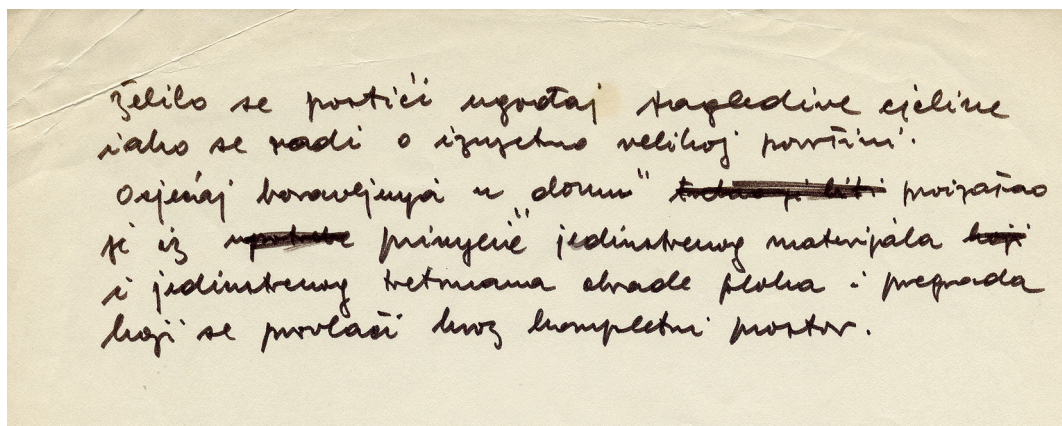 Željelo se postići ugođaj sagledive cjeline
iako se radi o izuzetno velikoj površini.
Osjećaj boravljenja u "domu" proizašao
je iz primjene jedinstvenog materijala
i jedinstvenog tretmana obrade ploha i pregrada
koji se provlači kroz kompletni prostor.